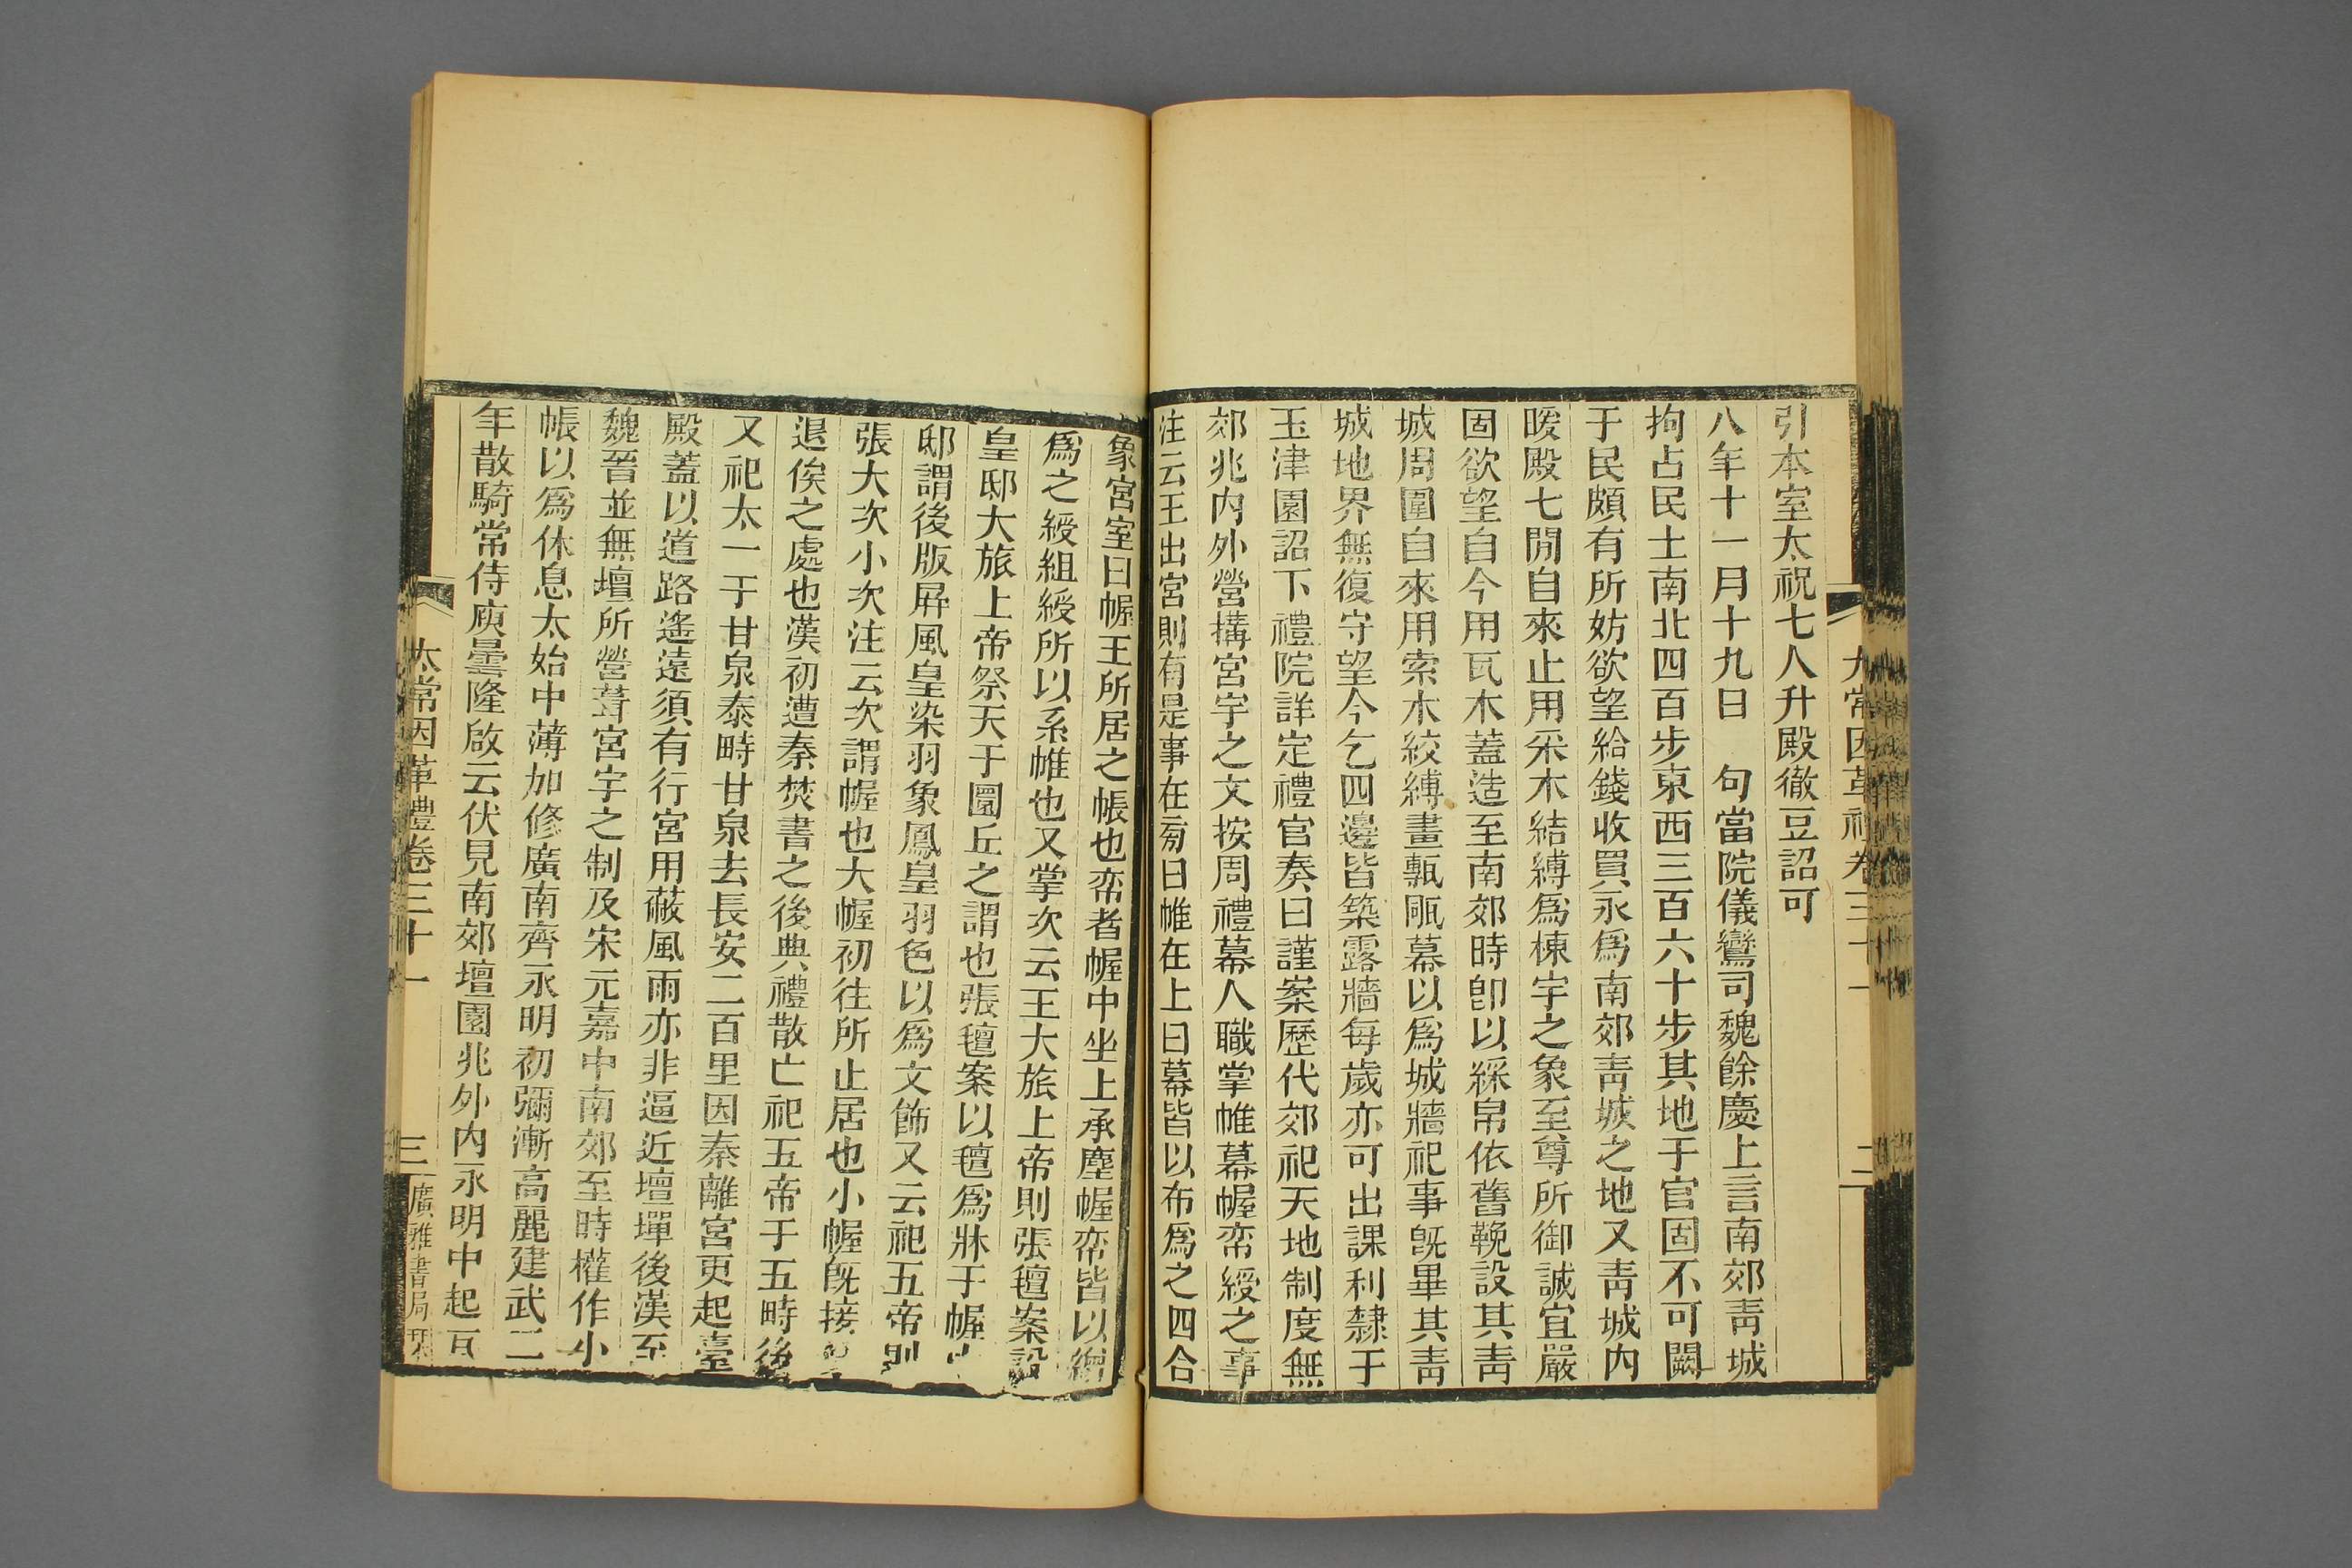 引本室太祝七人升殿徹豆詔可
八年十一月十九日　句當院儀鸞司魏餘慶上言南郊靑城
拘占民土南北四百步東西三百六十步其地于官固不可闕
于民頗有所妨欲望給錢收買永爲南郊靑城之地又靑城內
暖殿七閒自來止用采木結縛爲棟宇之象至尊所御誠宜嚴
固欲望自今用瓦木蓋造至南郊時卽以綵帛依舊鞔設其靑
城周圍自來用索木絞縛畫甎甋幕以爲城牆祀事旣畢其靑
城地界無復守望今乞四邊皆築露牆每歲亦可出課利隸于
玉津園詔下禮院詳定禮官奏曰謹案歷代郊祀天地制度無
郊兆內外營搆宮宇之文按周禮幕人職掌帷幕幄帟綬之事
注云王出宮則有是事在旁曰帷在上曰幕皆以布爲之四合
象宮室曰幄王所居之帳也帟者幄中坐上承塵幄帟皆以繒
爲之綬組綬所以系帷也又掌次云王大旅上帝則張氊案設
皇邸大旅上帝祭天于圜丘之謂也張氊案以氊爲牀于幄
邸謂後版屛風皇染羽象鳳皇羽色以爲文飾又云祀五帝則
張大次小次注云次謂幄也大幄初往所止居也小幄旣接
退俟之處也漢初遭秦焚書之後典禮散亡祀五帝于五畤後
又祀太一于甘泉泰畤甘泉去長安二百里因秦離宮更起臺
殿蓋以道路遙遠須有行宮用蔽風雨亦非逼近壇墠後漢至
魏晉並無壇所營葺宮宇之制及宋元嘉中南郊至時權作小
帳以爲休息太始中薄加修廣南齊永明初彌漸高麗建武二
年散騎常侍庾曇隆啟云伏見南郊壇園兆外內永明中起瓦
太常因革禮卷三十一
三
廣雅書局栞